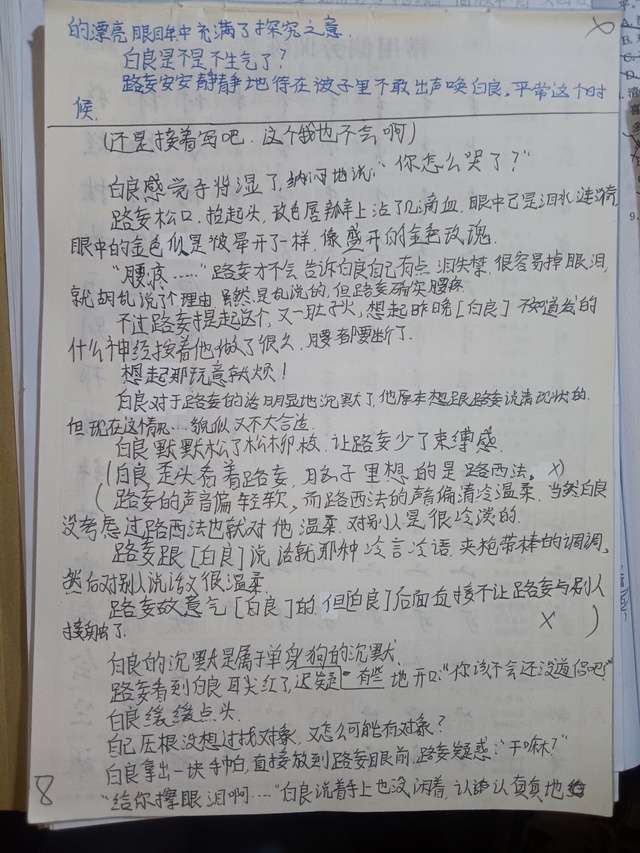 的漂亮眼眸中充满了探究之意.
白良是不是不生气了?
路委安安静静地待在被子里不敢出声唤白良.平常这个时
候.
(还是接着写吧.这个我也不会啊)
白良感觉手指湿了,纳闷地说:"你怎么哭了?"
路委松口,抬起头,玫色唇瓣上沾了几滴血.眼中已是泪水涟漪,
眼中的金色似是被晕开了一样.像盛开的金色玫瑰.
"腰疼……"路委才不会告诉白良自己有点泪失禁.很容易掉眼泪,
就胡乱说了个理由虽然是乱说的,但路委确实腰疼.
不过路委提起这个,又一肚子火,想起昨晚[白良]不知道发的
什么神经按着他做了很久.腰都要断了.
想起那玩意就烦!
白良对于路委的话明显地沉默了,他原本想跟路委说清现状的.
但现在这个情况…貌似又不大合适.
白良默默松了松柳枝.让路委少了束缚感.
(白良歪头看着路委,脑子里想的是路西法. x)
(路委的声音偏轻软,而路西法的声音偏清冷温柔.当然白良
没考虑过路西法也就对他温柔.对别人是很冷淡的.
路委跟[白良]说话就那种冷言冷语.夹枪带棒的调调,
然后对别人说话又很温柔.
路委故意气[白良]的.但[白良]后面直接不让路委与别人
接触了. x )
白良的沉默是属于单身狗的沉默.
路委看到白良耳尖红了,迟疑有些地开口:"你该不会还没道侣吧?"
白良缓缓点头.
自己压根没想过找对象,又怎么可能有对象?
白良拿出一块手帕,直接放到路委眼前,路委疑惑:"干嘛?"
"给你擦眼泪啊…."白良说着手上也没闲着,认认真真地给
8